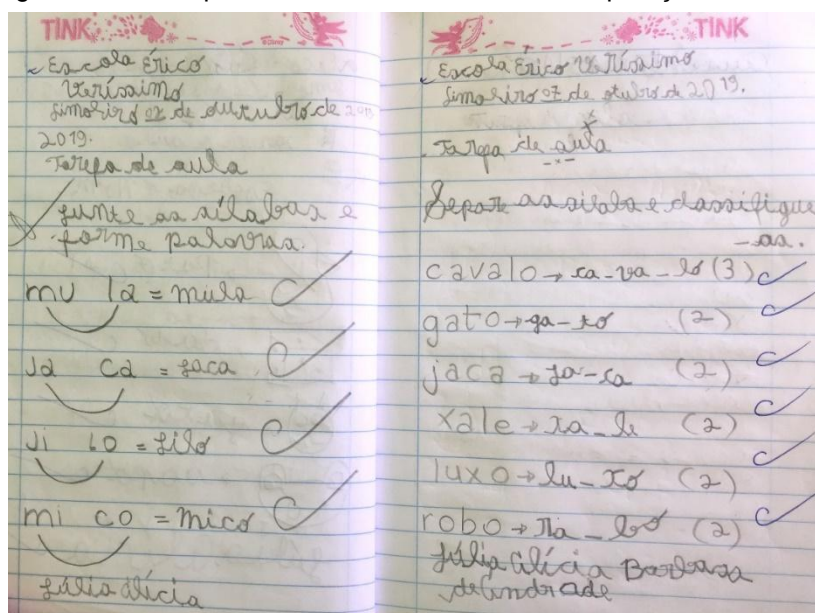 TINK
Escola Érico
Veríssimo
Limoeiro 07 de outubro de 2019
2019.
Tarefa de aula
Junte as sílabas e
forme palavras.
mu la = mula
Ja Ca = jaca
Ji LO = jiló
mi co = mico
Júlia Alícia
TINK
Escola Érico Veríssimo
Limoeiro 07 de otubro de 2019.
Tarefa de aula
Separe as silaba e classifique
-as.
cavalo → ca-va-lo (3)
gato → ga-to (2)
jaca → ja-ca (2)
xale → xa-le (2)
luxo → lu-xo (2)
robo → ro-bo (2)
Júlia Alícia Barbosa
de Andrade